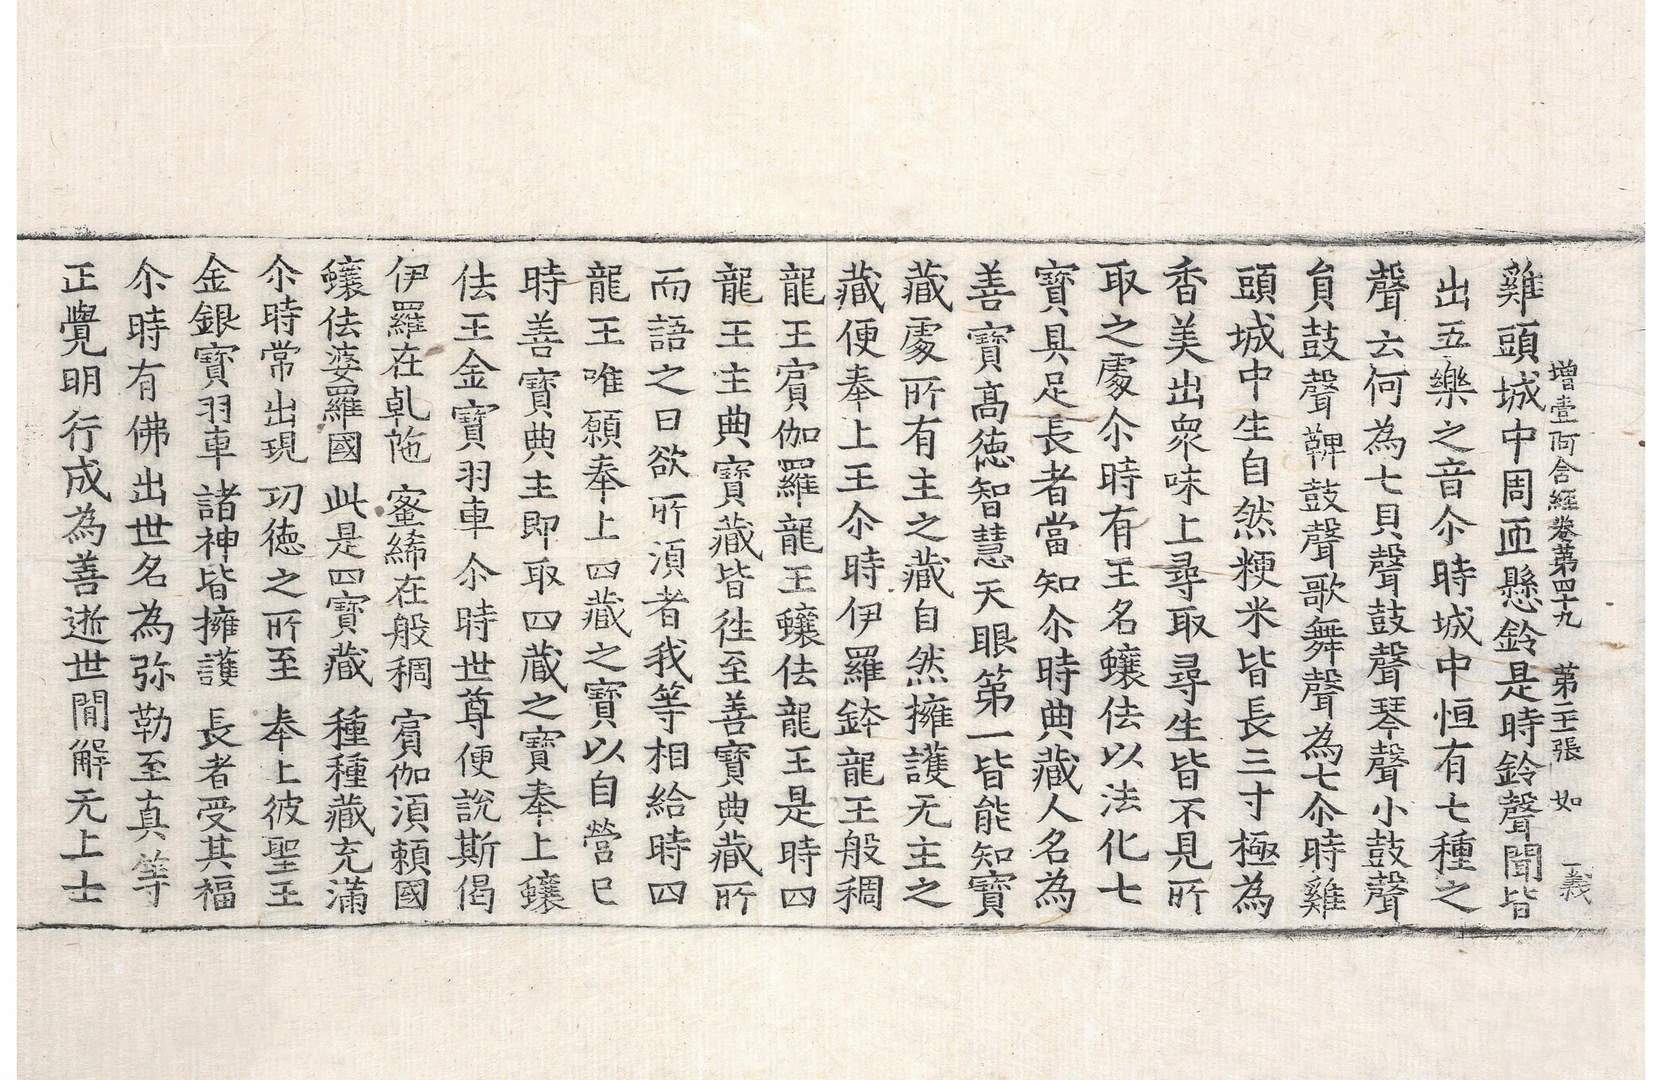 增壹阿含經卷第四十九 第二十張 如 義
雞頭城中周匝懸鈴是時鈴聲聞皆
出五樂之音尒時城中恒有七種之
聲云何為七貝聲鼓聲琴聲小鼓聲
貟鼓聲鞞鼓聲歌舞聲為七尒時雞
頭城中生自然粳米皆長三寸極為
香美出衆味上尋取尋生皆不見所
取之處尒時有王名蠰佉以法化七
寶具足長者當知尒時典藏人名為
善寶高德智慧天眼第一皆能知寶
藏處所有主之藏自然擁護无主之
藏便奉上王尒時伊羅鉢龍王般稠
龍王賔伽羅龍王蠰佉龍王是時四
龍王主典寶藏皆徃至善寶典藏所
而語之曰欲所湏者我等相給時四
龍王唯願奉上四藏之寶以自營已
時善寶典主即取四藏之寶奉上蠰
佉王金寶羽車尒時世尊便說斯偈
伊羅在乹陁 蜜絺在般稠 賔伽湏頼國
蠰佉婆羅國 此是四寶藏 種種藏充滿
尒時常出現 㓛德之所至 奉上彼聖王
金銀寶羽車 諸神皆擁護 長者受其福
尒時有佛出世名為弥勒至真等
正覺明行成為善逝世間解无上士